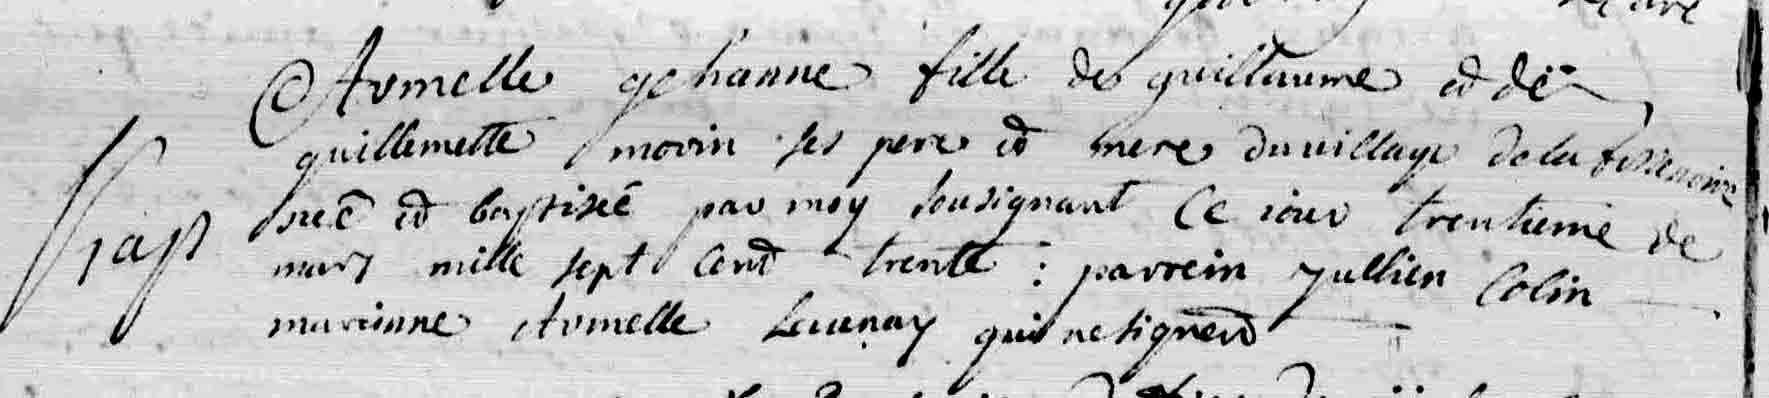 Armelle gehanne fille de guillaume et de
guillemette morin ses pere et mere du village de la
bap
neé et baptiseé par moy sousignant Ce iour trentieme de
mars mille sept Cent trente : parrein Jullien Colin
mareinne Armelle Launay qui ne signent